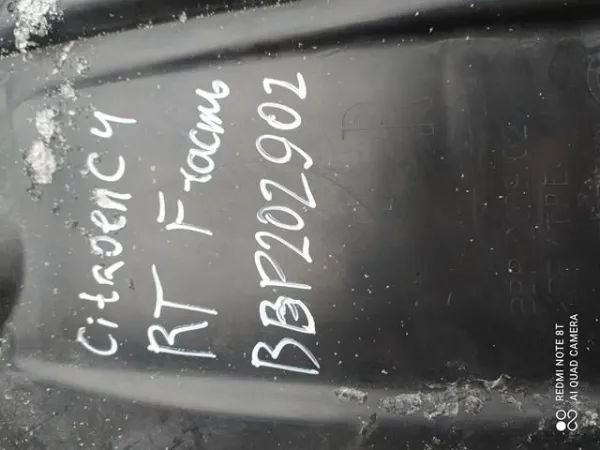 Citroen C4
RT F часть
BBP202902
REDMI NOTE 8T
AI QUAD CAMERA